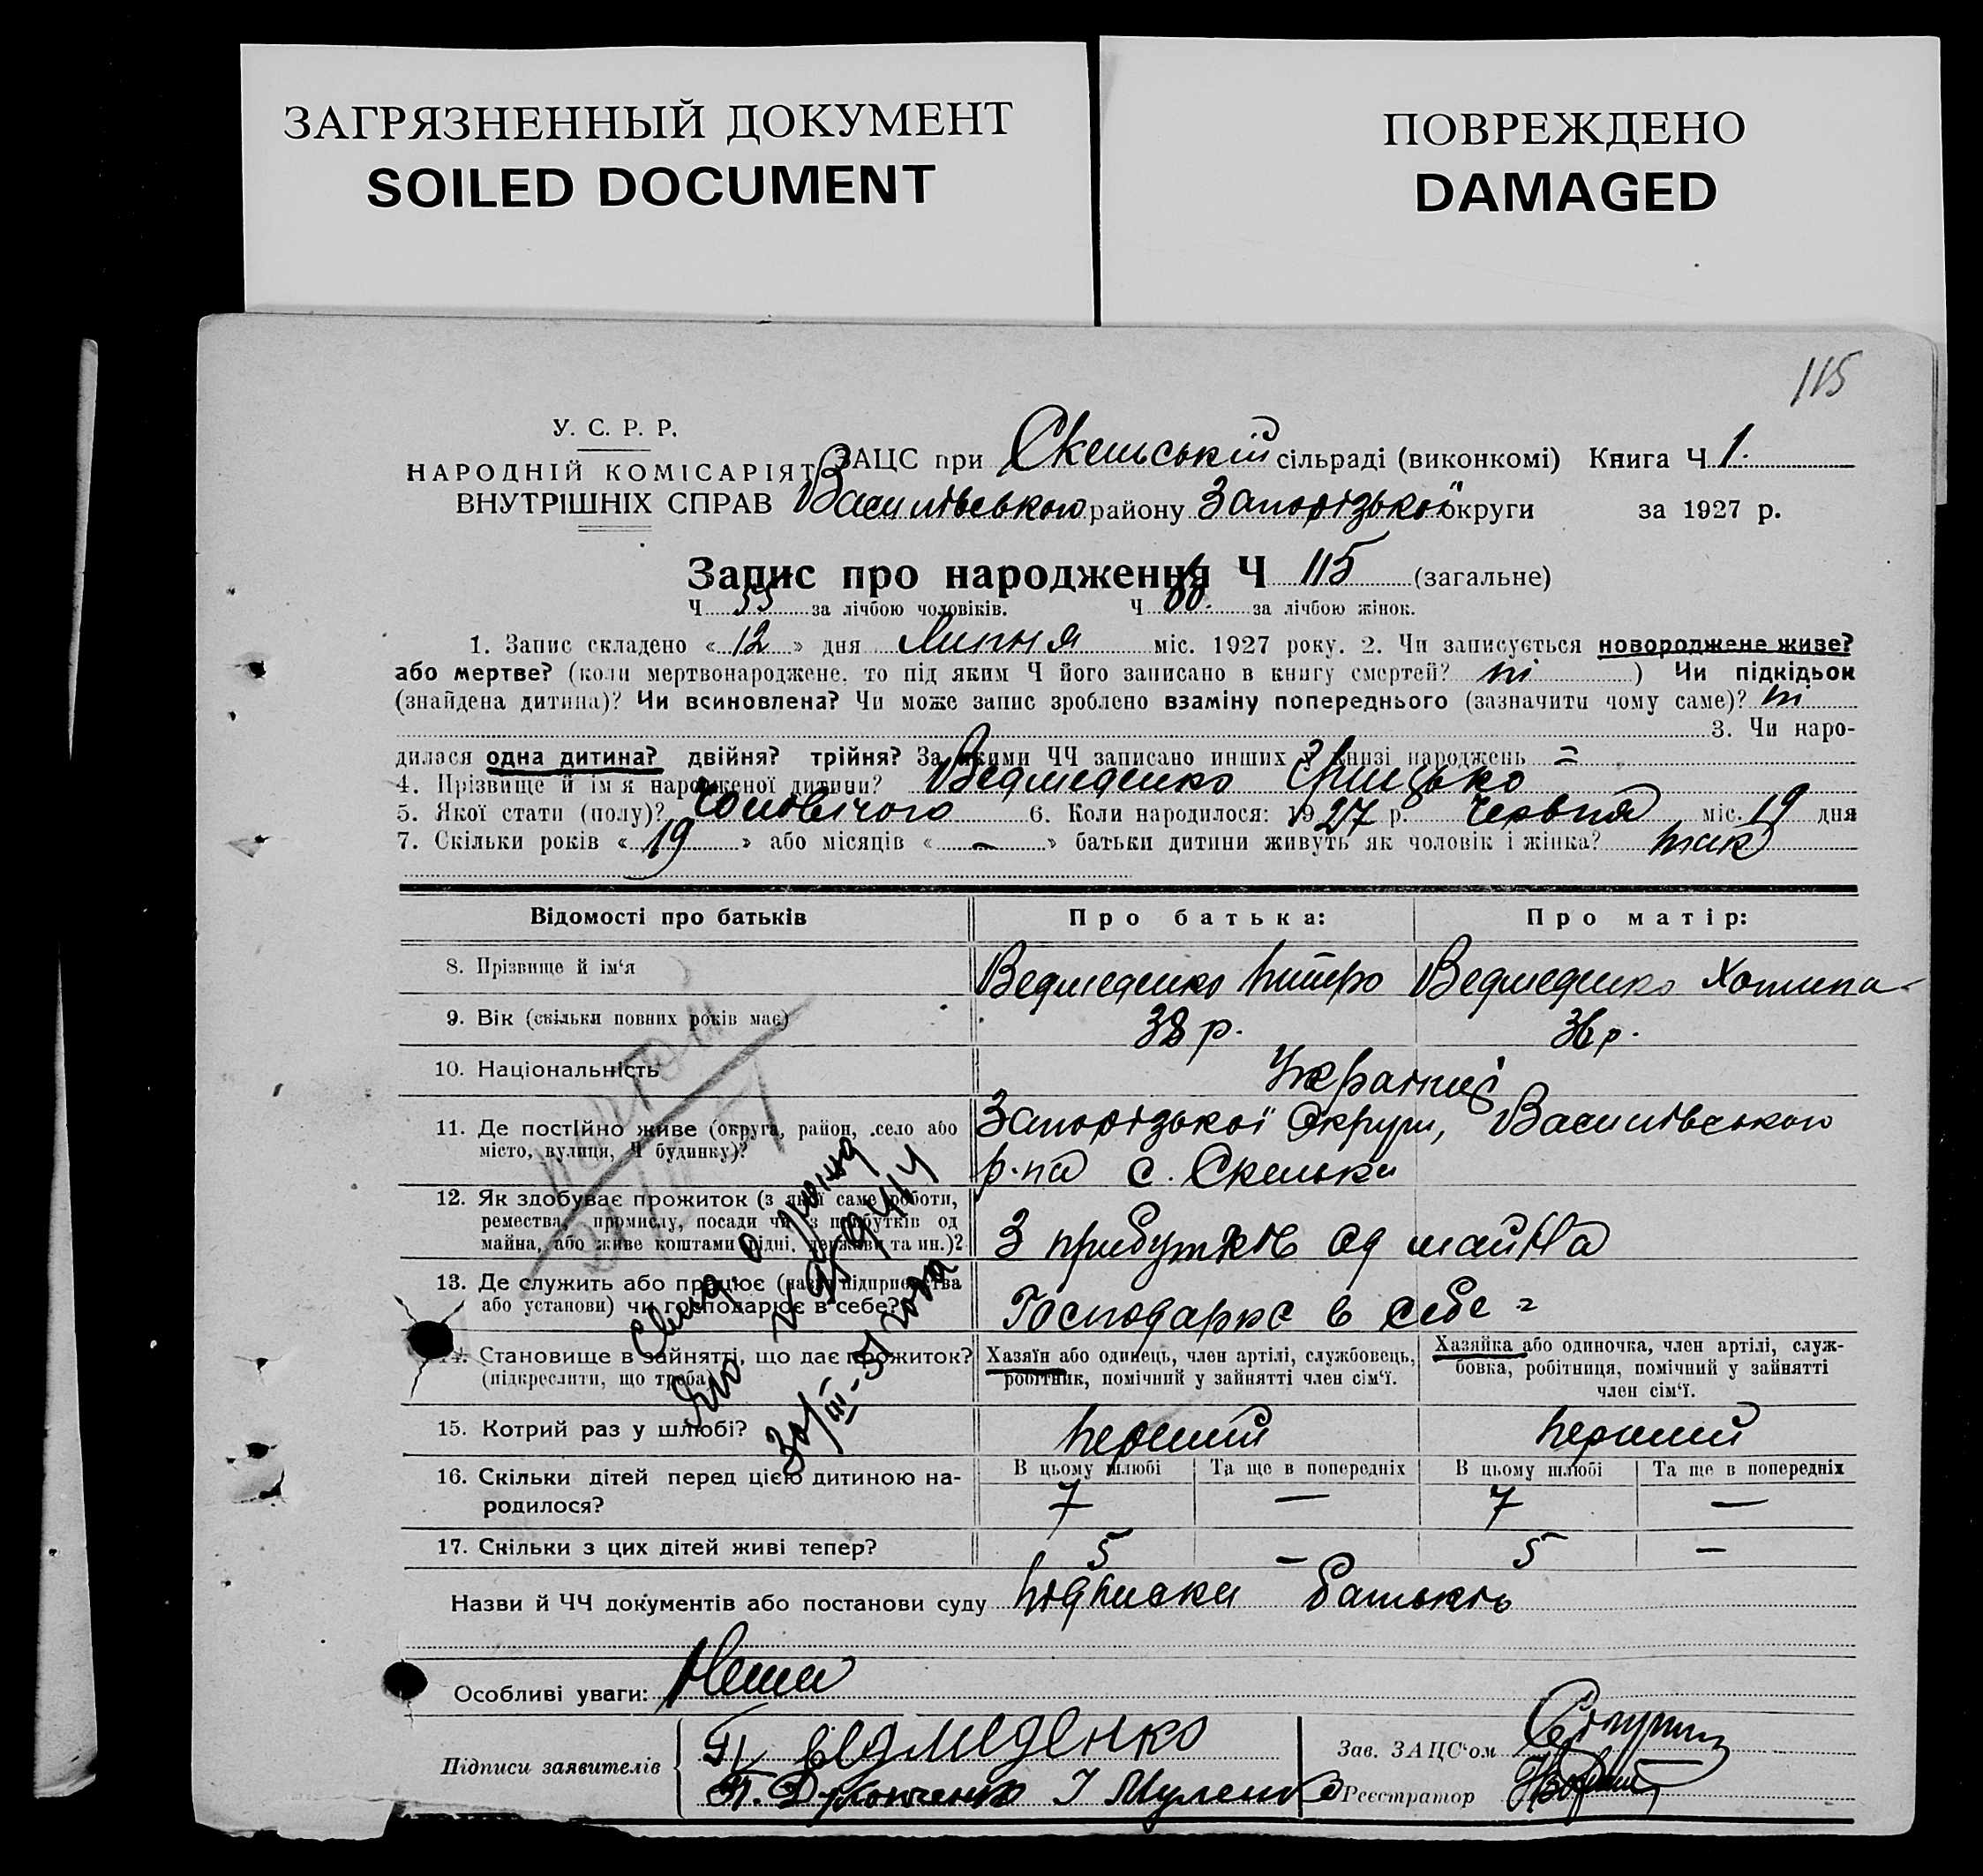 ЗАГРЯЗНЕННЫЙ ДОКУМЕНТ
SOILED DOCUMENT
ПОВРЕЖДЕНО
DAMAGED
115
У. С. Р. Р.
НАРОДНІЙ КОМІСАРІЯТ
ВНУТРІШНІХ СПРАВ
ЗАЦС при Скельській сільраді (виконкомі) Книга Ч 1.
Василівського району Запорізької округи за 1927 р.
Запис про народження Ч 115 (загальне)
Ч 55 за лічбою чоловіків. Ч 60. за лічбою жінок.
1. Запис складено « 12 » дня Липня міс. 1927 року. 2. Чи записується новороджене живе?
або мертве? (коли мертвонароджене, то під яким Ч його записано в книгу смертей? ні ) Чи підкідьок
(знайдена дитина)? Чи всиновлена? Чи може запис зроблено взаміну попереднього (зазначити чому саме)? ні
3. Чи наро-
дилася одна дитина? двійня? трійня? За якими ЧЧ записано инших у книзі народжень =
4. Прізвище й ім'я народженої дитини? Ведмеденко Грицько
5. Якої стати (полу)? Чоловічого 6. Коли народилося: 1927 р. Червня міс. 19 дня
7. Скільки років « 19 » або місяців « – » батьки дитини живуть як чоловік і жінка? так
Відомості про батьків Про батька: Про матір:
8. Прізвище й ім'я Ведмеденко Питро Ведмеденко Хотина
9. Вік (скільки повних років має) 38 р. 36 р.
10. Національність Українці
11. Де постійно живе (округа, район, село або Запорізької Округи, Василівського
місто, вулиця, Ч будинку)? р-на с. Скельки
12. Як здобуває прожиток (з якої саме роботи,
ремества, промислу, посади чи з прибутків од
майна, або живе коштами рідні, держави та ин.)? З прибутків од майна
13. Де служить або працює (назва підприємства
або установи) чи господарює в себе? Господарює в себе =
14. Становище в зайнятті, що дає прожиток? Хазяїн або одинець, член артілі, службовець, Хазяйка або одиночка, член артілі, служ-
(підкреслити, що треба) робітник, помічний у зайнятті член сім'ї. бовка, робітниця, помічний у зайнятті
член сім'ї.
15. Котрий раз у шлюбі? перший перший
16. Скільки дітей перед цією дитиною на- В цьому шлюбі Та ще в попередніх В цьому шлюбі Та ще в попередніх
родилося? 7 — 7 —
17. Скільки з цих дітей живі тепер? 5 – 5 –
Назви й ЧЧ документів або постанови суду підписка батьків
Особливі уваги: Нема
Підписи заявителів П Ведмеденко Зав. ЗАЦС'ом
Реєстратор
30/III-51 года